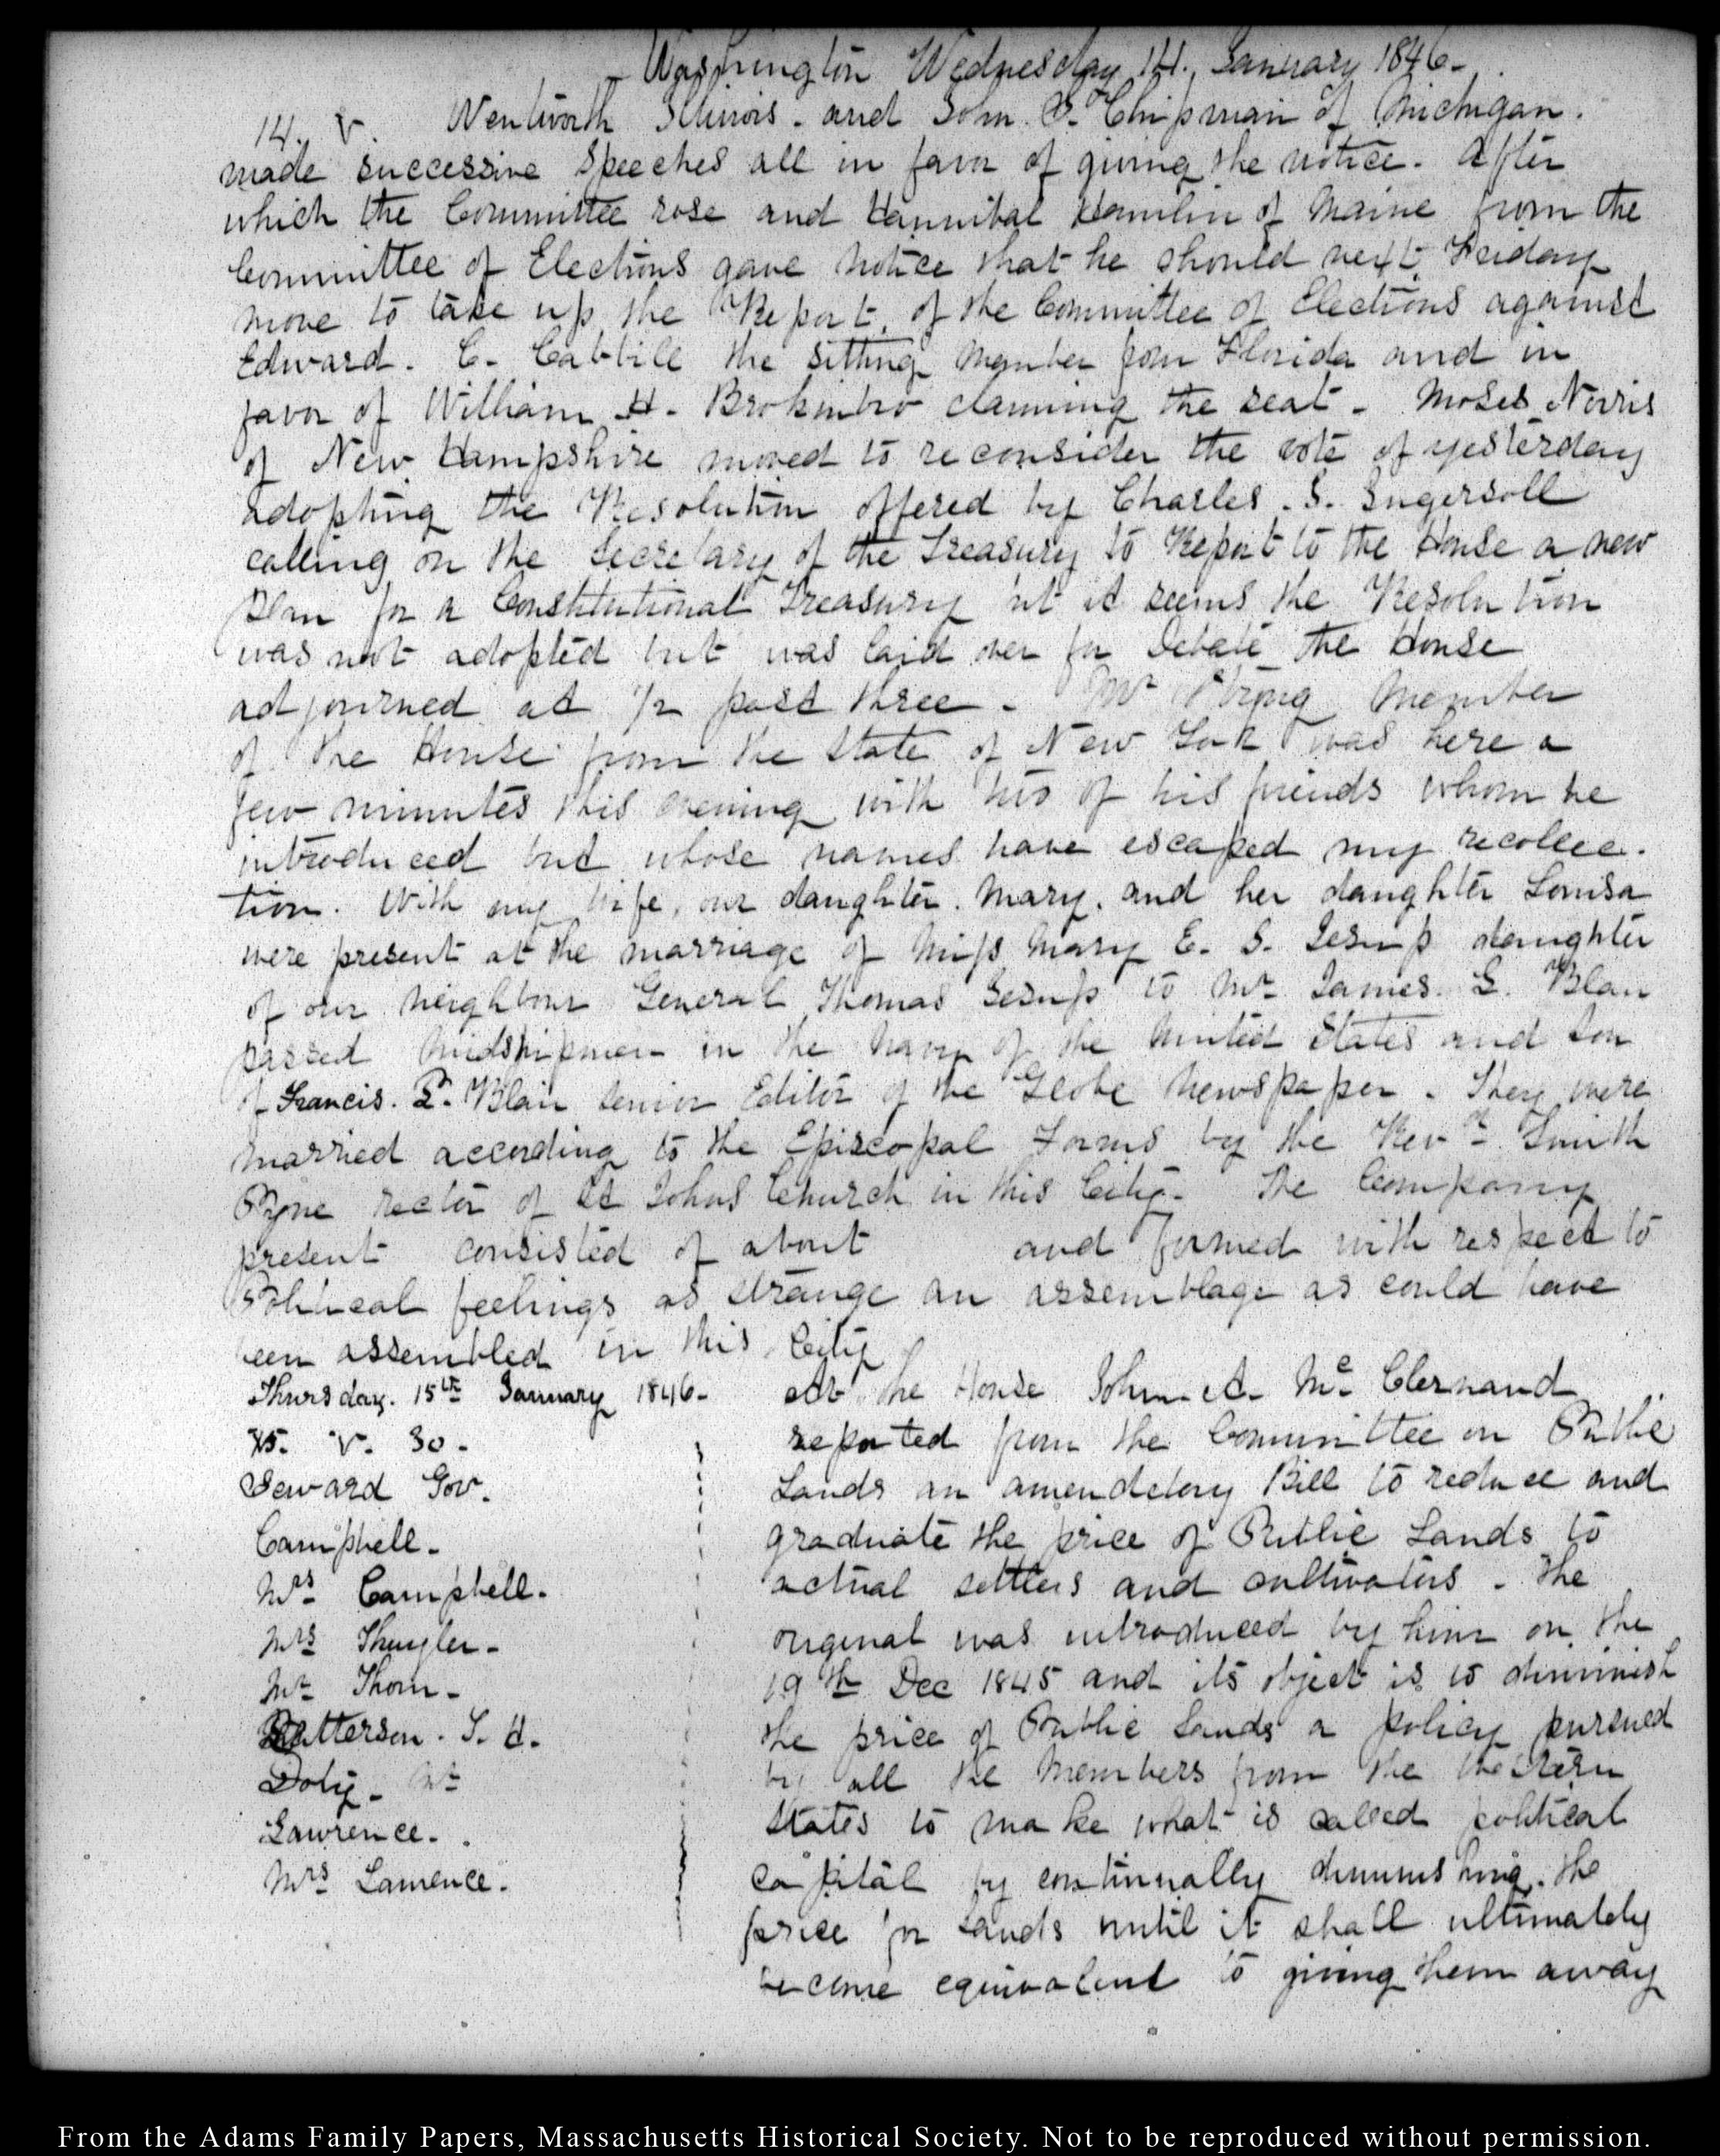 Washington Wednesday 14. January 1846-
14. V. Wentworth Illinois. and John S. Chipman of Michigan.
made successive speeches all in favor of giving the notice. After
which the Committee rose and Hannibal Hamlin of Maine from the
Committee of Elections gave notice that he should next Friday
move to take up the Report, of the Committee of Elections against
Edward. C. Cabbill the sitting member from Florida and in
favor of William H. Brokinbro claiming the seat - Moses Norris
of New Hampshire moved to reconsider the vote of yesterday
adopting the Resolution offered by Charles. S. Ingersoll
calling on the Secretary of the Treasury to Report to the House a new
plan for a Constitutional Treasury but it seems the Resolution
was not adopted but was laid over for Debate the House
adjourned at 1/2 past three - Mr Strong member
of the House from the State of New York was here a
few minutes this evening with two of his friends whom he
introduced but whose names have escaped my recollec.
tion. With my wife, our daughter. Mary. and her daughter Louisa
were present at the marriage of Miss Mary E. S. Jesup daughter
of our neighbour General Thomas Jesup to Mr James. L. Blair
passed Midshipman in the Navy of the United States and Son
of Francis. P. Blair senior Editor of the Globe Newspaper. They were
married according to the Episcopal Forms by the Revd. Smith
Pyne rector of St Johns Church in this City- The Company
present consisted of about and formed with respect to
Political feelings as strange an assemblage as could have
been assembled in this City
Thursday. 15th January 1846-
X5. V. 30-
Seward Gov.
Campbell-
Mrs Campbell.
Mrs
Mr Thom-
Patterson. T. H.
Doty- Mr
Lawrence.
Mrs Lawrence.
At the House John-A- Mc Clernand
reported from the Committee on Public
Lands an amendatory Bill to reduce and
graduate the price of Public Lands to
actual settlers and cultivators - The
original was introduced by him on the
19th Dec 1845 and its object is to diminish
the price of Public Lands a policy pursued
by all the Members from the Western
States to make what is called political
capital by continually diminishing. the
price for Lands until it shall ultimately
become equivalent to giving them away
From the Adams Family Papers, Massachusetts Historical Society. Not to be reproduced without permission.